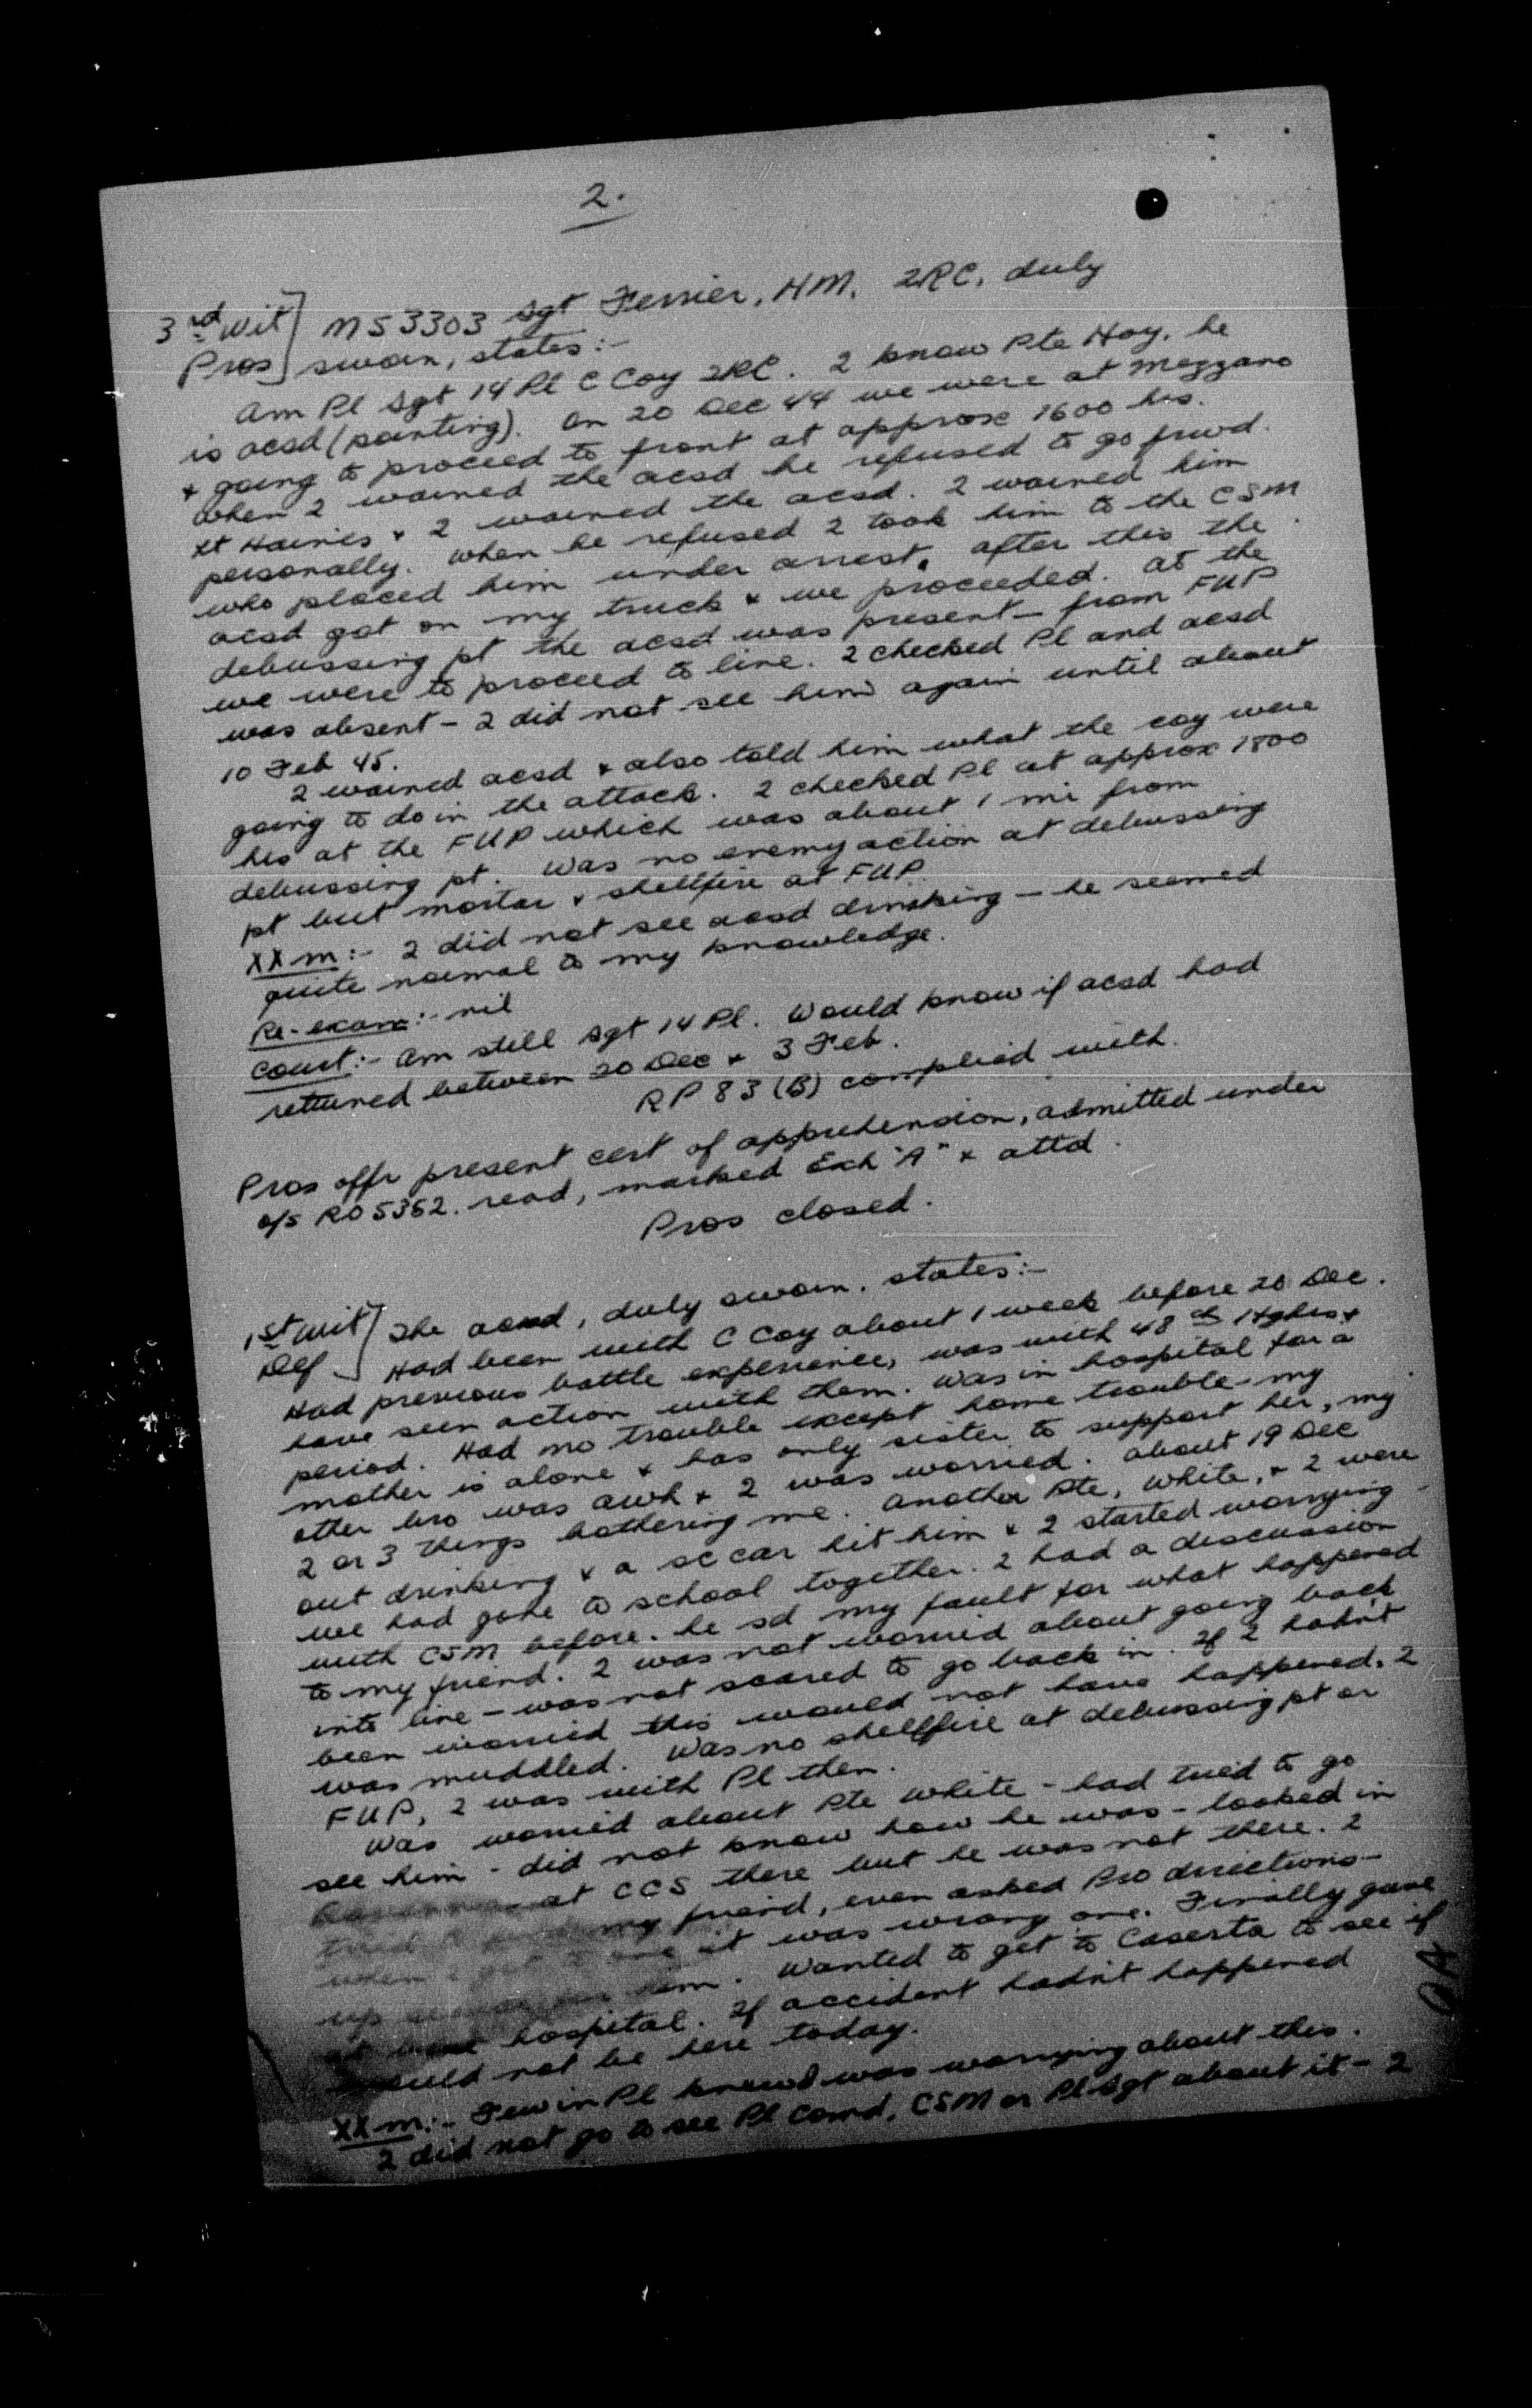 2.
3rd Wit] M53303 Sgt Ferrier, HM, 2RC, duly
Pros] sworn, states:-
Am Pl Sgt 14 Pl C Coy 2RC. I know Pte Hoy, he
is acsd (pointing). On 20 Dec 44 we were at Mezzano
& going to proceed to front at approx 1600 hrs.
When I warned the acsd he refused to go frwd.
Lt Haines & I warned the acsd. I warned him
personally. When he refused I took him to the CSM
who placed him under arrest. After this the
acsd got on my truck & we proceeded. At the
debussing pt the acsd was present - from FUP
we were to proceed to line. I checked Pl and acsd
was absent - I did not see him again until about
10 Feb 45.
I warned acsd & also told him what the coy were
going to do in the attack. I checked Pl at approx 1800
hrs at the FUP which was about 1 mi from
debussing pt. Was no enemy action at debussing
pt but mortar & shellfire at FUP.
XXm:- I did not see acsd drinking - he seemed
quite normal to my knowledge.
Re-exam:- nil
Court:- Am still Sgt 14 Pl. Would know if acsd had
returned between 20 Dec & 3 Feb.
RP 83 (B) complied with.
Pros offr present cert of apprehension, admitted under
o/s RO 5352. read, marked Exh "A" & attd.
Pros closed.
1st Wit] The acsd, duly sworn, states:-
Def] Had been with C Coy about 1 week before 20 Dec.
Had previous battle experience, was with 48th Hghrs &
have seen action with them. Was in hospital for a
period. Had no trouble except home trouble - my
mother is alone & has only sister to support her, my
other bro was awh & I was worried. About 19 Dec
2 or 3 things bothering me. Another Pte, White, & I were
out drinking & a sc car hit him & I started worrying -
we had gone to school together. I had a discussion
with CSM before. he sd my fault for what happened
to my friend. I was not worried about going back
into line - was not scared to go back in. If I hadn't
been worried this would not have happened. I
was muddled. Was no shellfire at debussing pt or
FUP, I was with Pl then.
Was worried about Pte White - had tried to go
see him - did not know how he was - looked in
at CCS there but he was not there. I
tried to my friend, even asked Pro directions -
when I got to one it was wrong one. Finally gave
up him. Wanted to get to Caserta to see if
at hospital. If accident hadn't happened
would not be here today.
XXm:- Few in Pl knew I was worrying about this.
I did not go to see Pl Comd, CSM or Pl Sgt about it - I